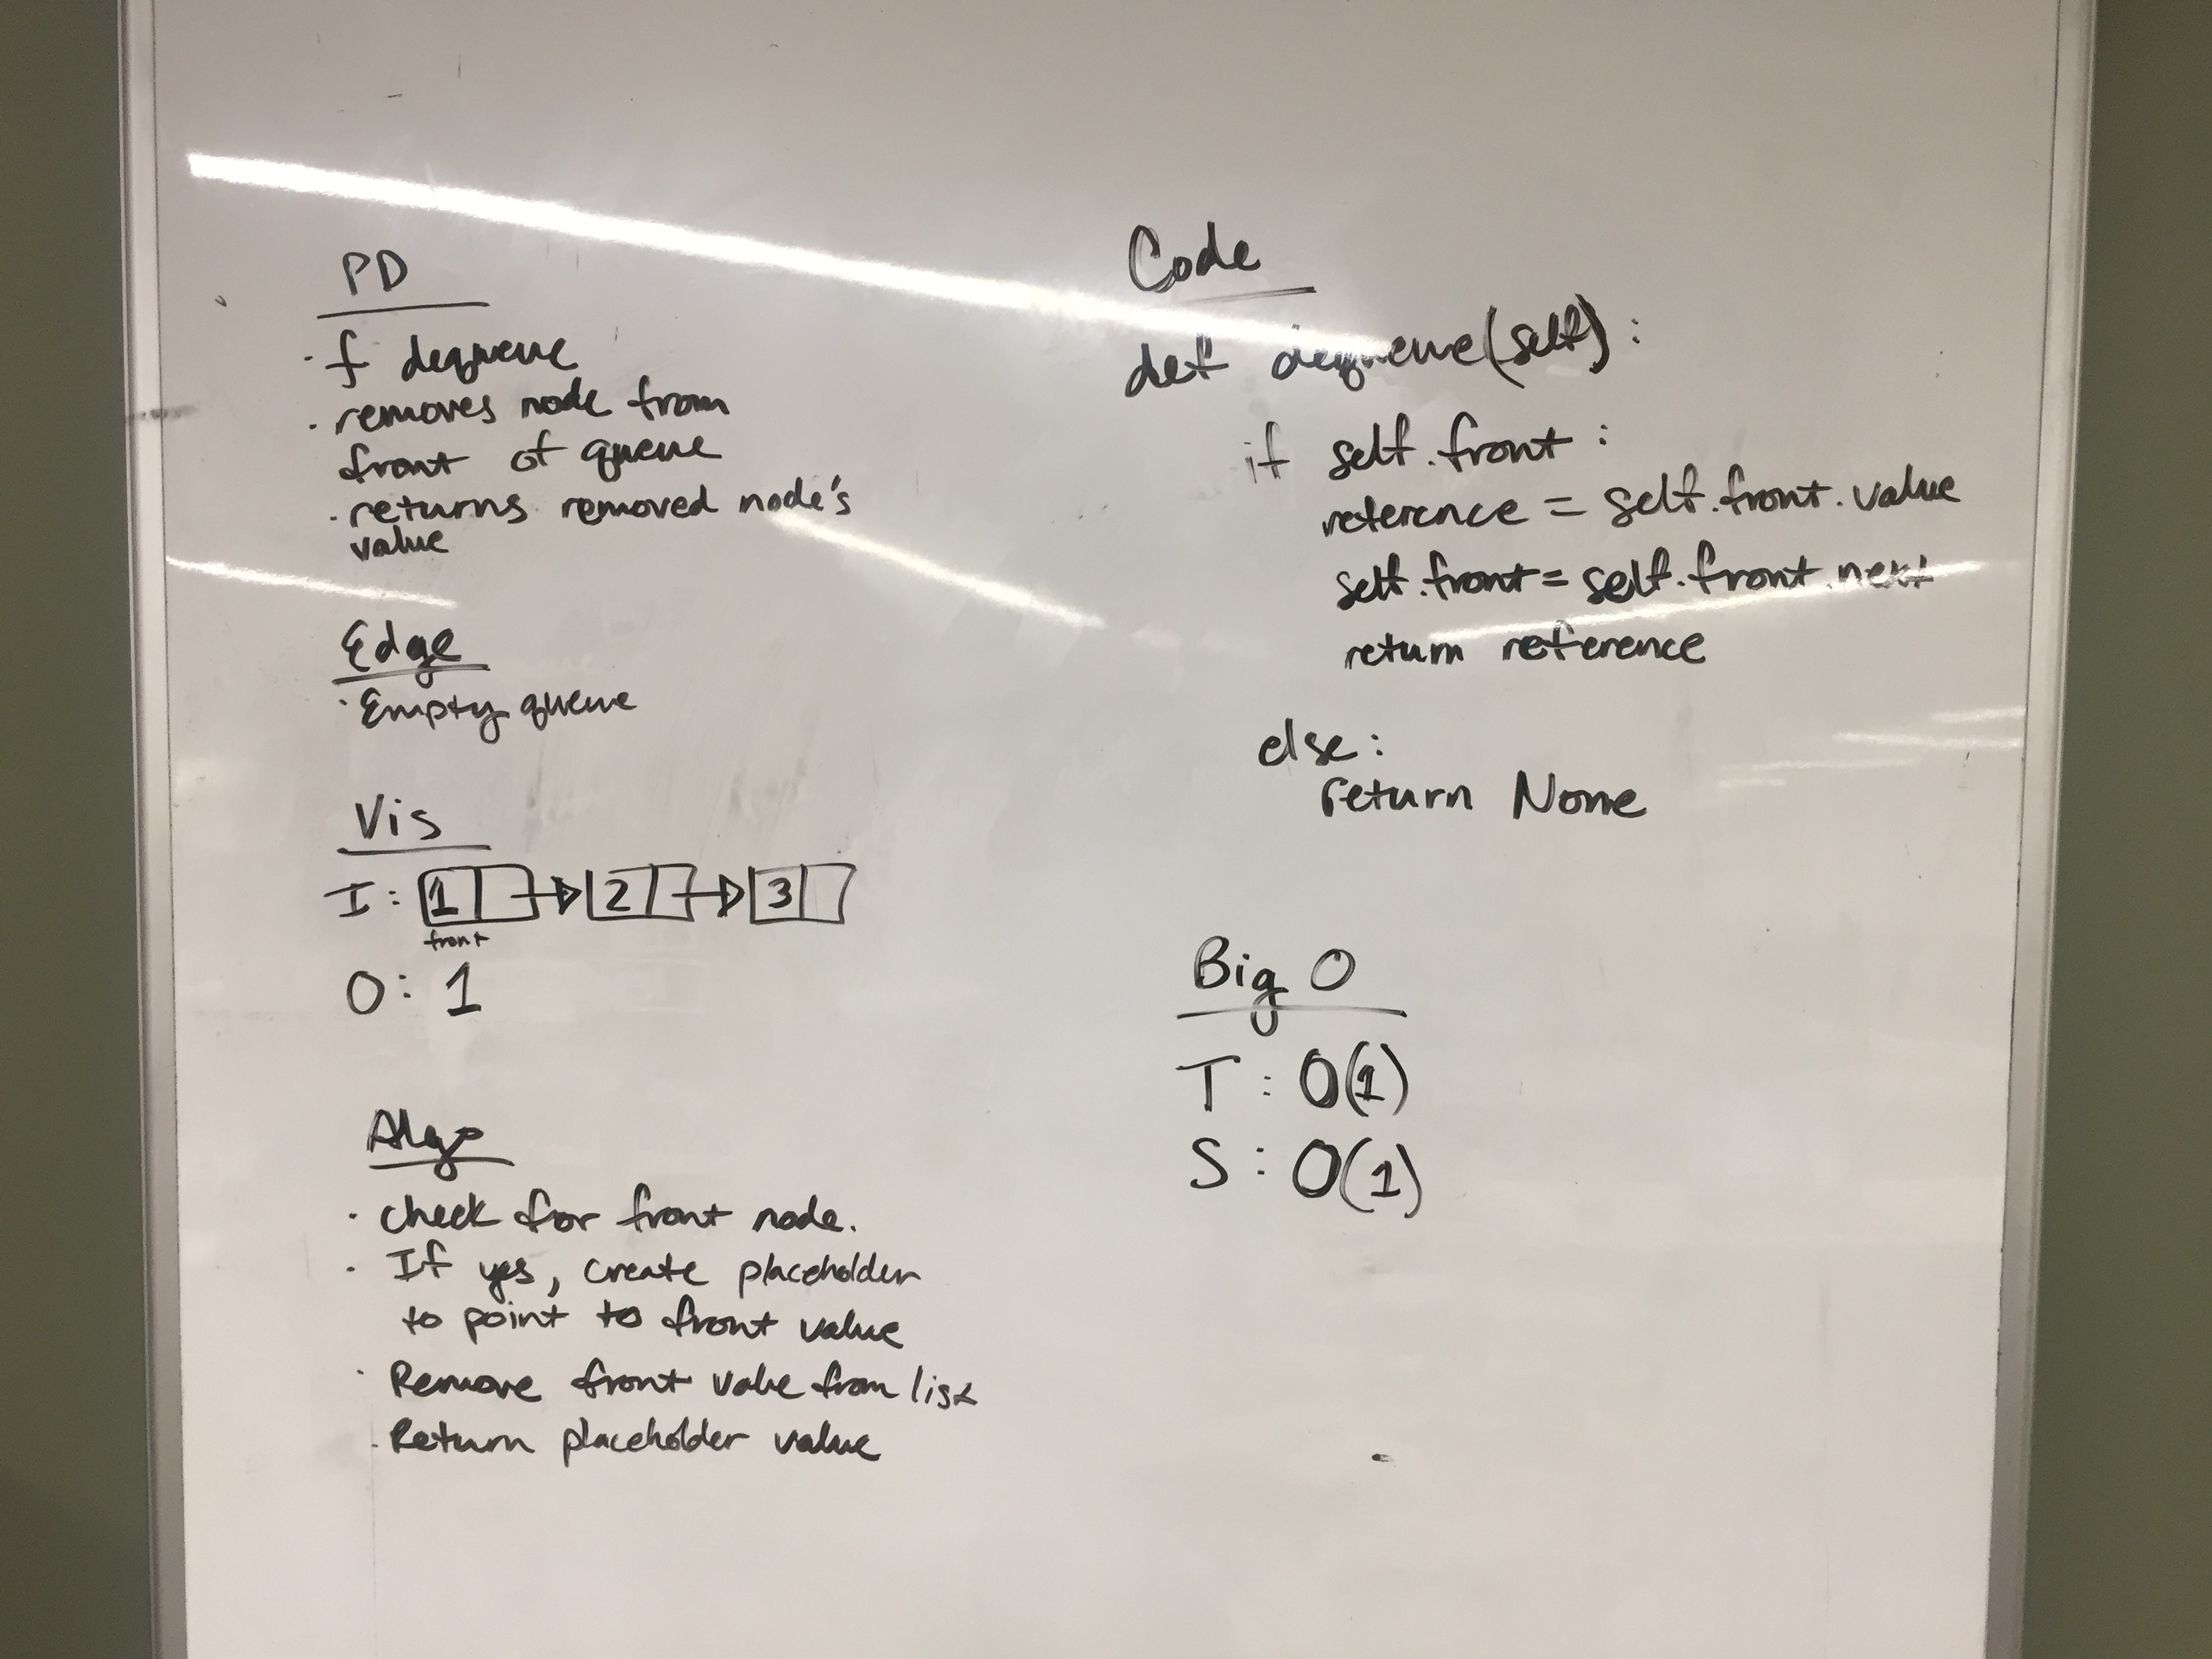 PD
· f dequeue
· removes node from
front of queue
· returns removed node's
value
Edge
· Empty queue
Vis
I: 1 2 3
front
O: 1
Algo
· check for front node.
· If yes, create placeholder
to point to front value
· Remove front value from list
· Return placeholder value
Code
def dequeue(self):
if self.front:
reference = self.front.value
self.front = self.front.next
return reference
else:
return None
Big O
T: O(1)
S: O(1)